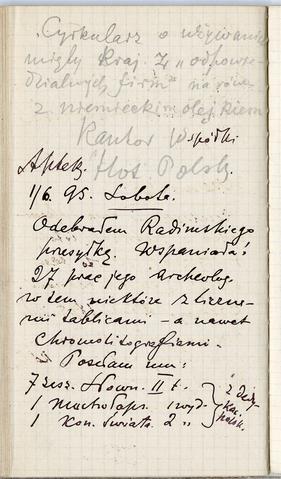 "Cyrkularz o używaniu
nigły Kraj. Zw. odpowie-
dzialnych firm" na równi
z niemieckim olejkiem
Kantor Współki
Aptek. "Flos Polsk.
1/6. 95. Sobota.
Odebrałem Radimskiego
przesyłkę. Wspaniała!
27 prac jego archeolog.
w tem niektóre z liczne-
mi tablicami - a nawet
chromolitografiami.
Posłam mu:
7 zesz. Słown. II t.
1 1 wyd.
1 Kon. Świata. 2 "
z dedy-
kac.
polsk.